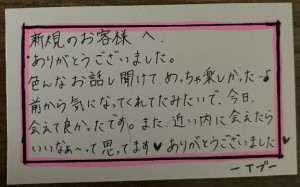 新規のお客様へ
ありがとうございました。
色んなお話し聞けて、めっちゃ楽しかったー
前から気になってくれてたみたいで、今日、
会えて良かったです。また近い内に会えたら
いいなぁ〜って思ってます♥ ありがとうございました♥